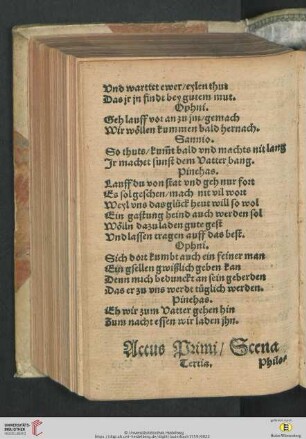 Vnd wartet ewer/eylen thut
Das jr jn findt bey gutem mut.
Ophni.
Geh lauff vor an zu jm/gemach
Wir wöllen kummen bald hernach.
Sannio.
So thuts/kum̃t bald vnd machts nit lang
Jr machet sunst dem Vatter bang.
Pinehas.
Lauff du von stat vnd geh nur fort
Es sol geschen/mach nit vil wort
Weyl vns das glück heut will so wol
Ein gastung heind auch werden sol
Wölln dazu laden gute gest
Vnd lassen tragen auff das best.
Ophni.
Sich dort kumbt auch ein feiner man
Ein gsellen gwißlich geben kan
Denn mich bedunckt an sein geberden
Das er zu vns werde tüglich werden.
Pinehas.
Eh wir zum Vatter gehen hin
Zum nacht essen wir laden jhn.
Actus Primi/ Scena
Tertia.
Philo-
UNIVERSITÄTS-
BIBLIOTHEK
HEIDELBERG
© Universitätsbibliothek Heidelberg